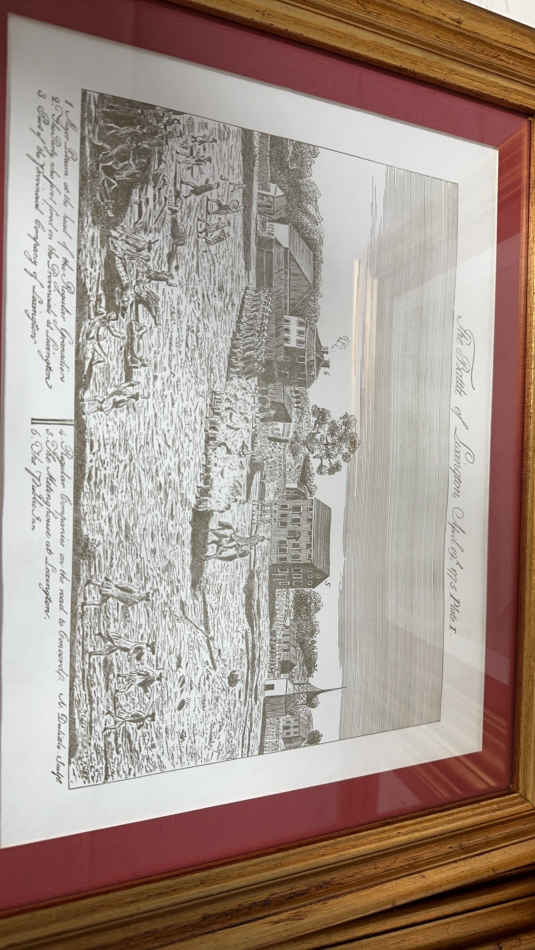 The Battle of Lexington, April 19th. 1775. Plate I.
1. Major Pitcairn at the head of the Regular Grenadiers
2. The Party who first fired on the Provincials at Lexington
3. Part of the Provincial Company of Lexington
4. Regular Companies on the road to Concord
5. The Metinghouse at Lexington.
6. The Public Inn
A. Doolittle Sculpt